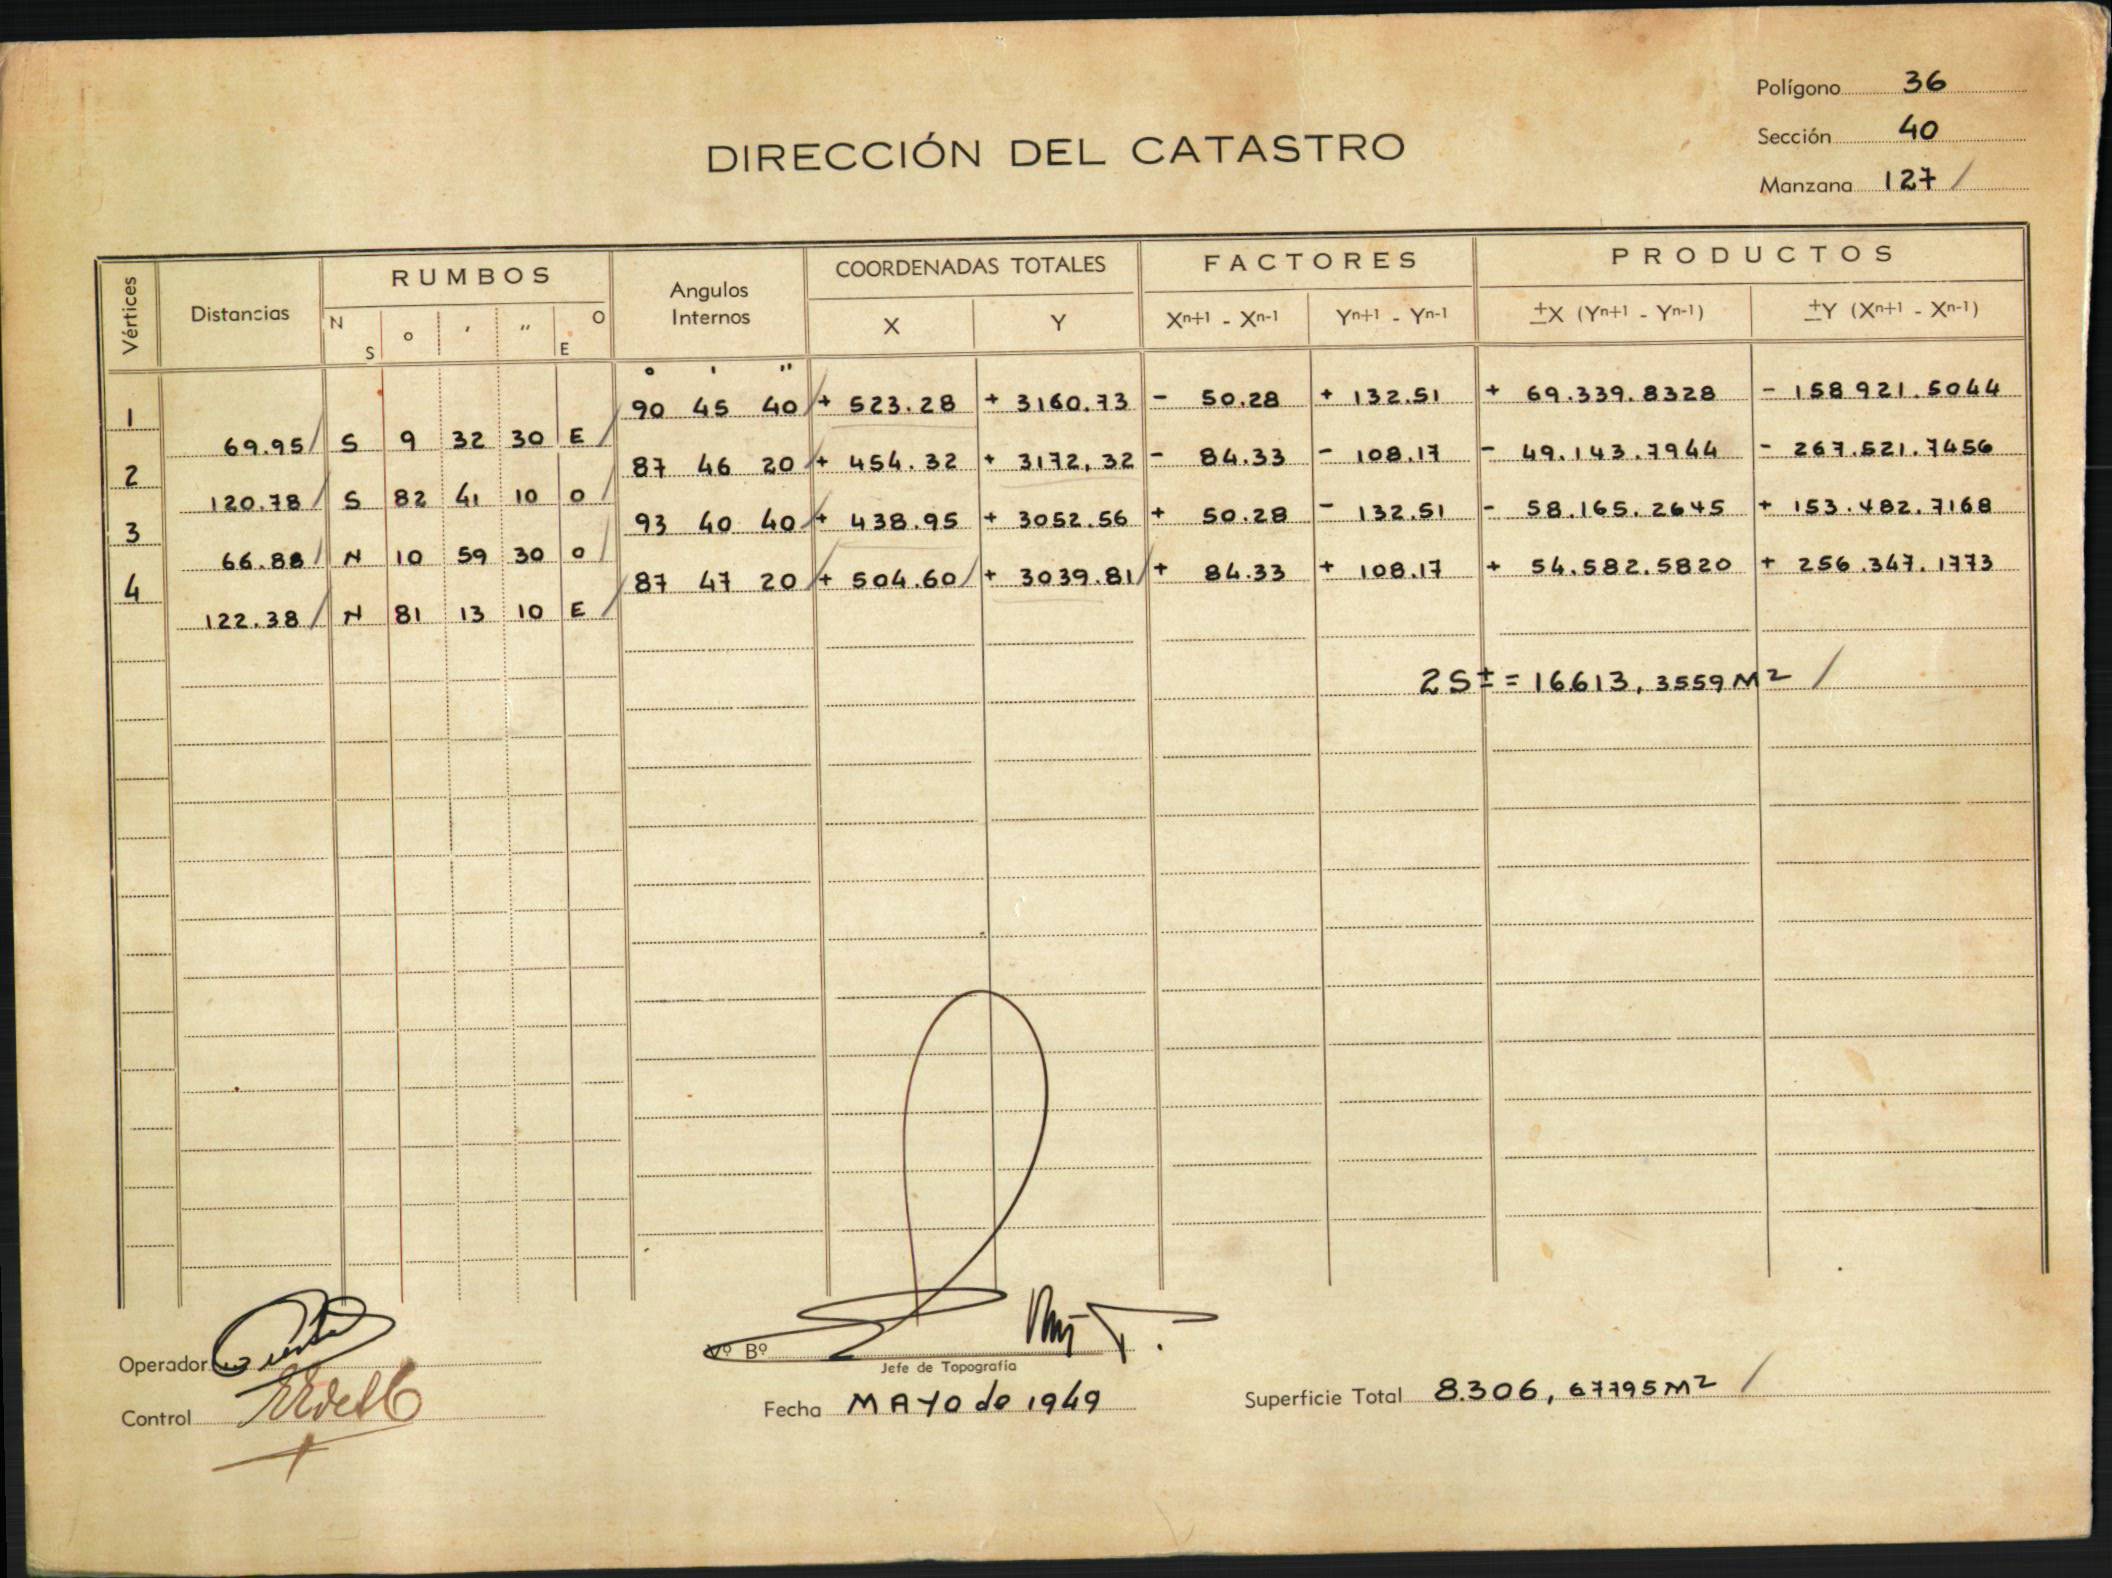 Polígono 36
Sección 40
Manzana 127 /
DIRECCIÓN DEL CATASTRO
Vértices Distancias RUMBOS Angulos Internos COORDENADAS TOTALES FACTORES PRODUCTOS
N S ° ' '' O E X Y Xn+1 - Xn-1 Yn+1 - Yn-1 ±X (Yn+1 - Yn-1) ±Y (Xn+1 - Xn-1)
° ' "
1 90 45 40 + 523.28 + 3160.73 - 50.28 + 132.51 + 69.339.8328 - 158921.5044
69.95 S 9 32 30 E
2 87 46 20 + 454.32 + 3172,32 - 84.33 - 108.17 - 49.143.7944 - 267.521.7456
120.78 S 82 41 10 O
3 93 40 40 + 438.95 + 3052.56 + 50.28 - 132.51 - 58.165.2645 + 153.482.7168
66.88 N 10 59 30 O
4 87 47 20 + 504.60 + 3039.81 + 84.33 + 108.17 + 54.582.5820 + 256.347.1773
122.38 N 81 13 10 E
2S± = 16613,3559 M2 /
Operador
Vº Bº
Jefe de Topografía
Control
Fecha MAYO de 1949
Superficie Total 8.306,67795 M2 /